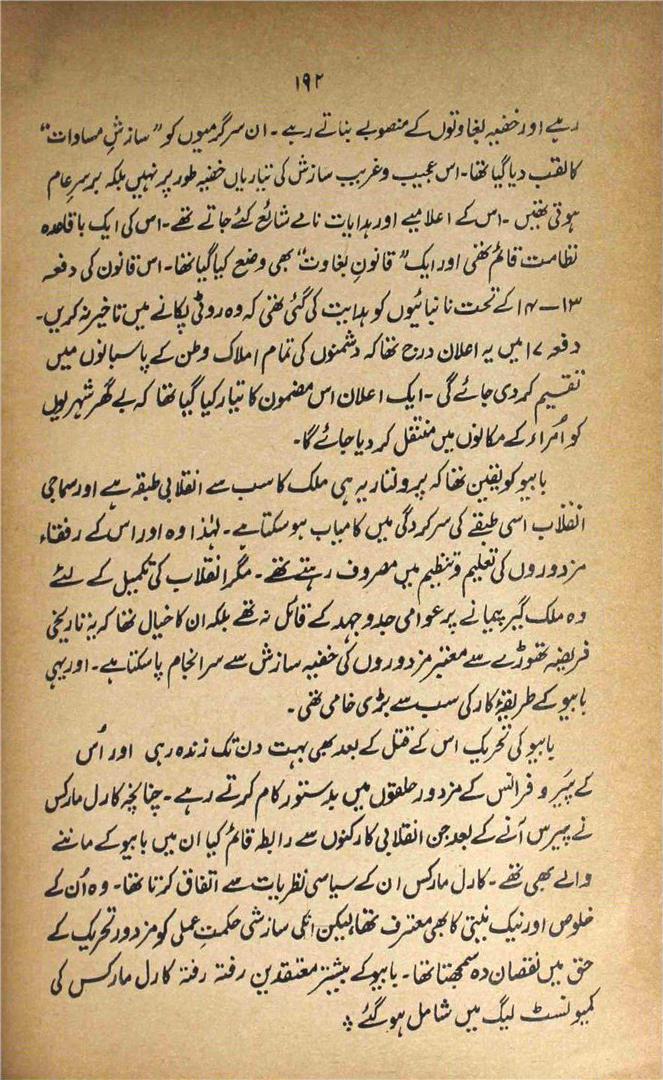 ۱۹۲
رہے اور خفیہ بغاوتوں کے منصوبے بناتے رہے ۔ ان سرگرمیوں کو ”سازشِ مساوات“
کا لقب دیا گیا تھا ۔ اس عجیب و غریب سازش کی تیاریاں خفیہ طور پر نہیں بلکہ برسرِ عام
ہوتی تھیں ۔ اس کے اعلامیے اور ہدایات نامے شائع کئے جاتے تھے ۔ اس کی ایک باقاعدہ
نظامت قائم تھی اور ایک ”قانونِ بغاوت“ بھی وضع کیا گیا تھا ۔ اس قانون کی دفعہ
۱۳ – ۱۴ کے تحت نانبائیوں کو ہدایت کی گئی تھی کہ وہ روٹی پکانے میں تاخیر نہ کریں ۔
دفعہ ۱۷ میں یہ اعلان درج تھا کہ دشمنوں کی تمام املاک وطن کے پاسبانوں میں
تقسیم کر دی جائے گی ۔ ایک اعلان اس مضمون کا تیار کیا گیا تھا کہ بے گھر شہریوں
کو اُمراء کے مکانوں میں منتقل کر دیا جائے گا ۔
بابیو کو یقین تھا کہ پرولتاریہ ہی ملک کا سب سے انقلابی طبقہ ہے اور سماجی
انقلاب اسی طبقے کی سرکردگی میں کامیاب ہو سکتا ہے ۔ لہٰذا وہ اور اس کے رفقاء
مزدوروں کی تعلیم و تنظیم میں مصروف رہتے تھے ۔ مگر انقلاب کی تکمیل کے لئے
وہ ملک گیر پیمانے پر عوامی جدوجہد کے قائل نہ تھے بلکہ ان کا خیال تھا کہ یہ تاریخی
فریضہ تھوڑے سے معتبر مزدوروں کی خفیہ سازش سے سرانجام پا سکتا ہے ۔ اور یہی
بابیو کے طریقۂ کار کی سب سے بڑی خامی تھی ۔
بابیو کی تحریک اس کے قتل کے بعد بھی بہت دن تک زندہ رہی اور اُس
کے پیَرو فرانس کے مزدور حلقوں میں بدستور کام کرتے رہے ۔ چنانچہ کارل مارکس
نے پیرس آنے کے بعد جن انقلابی کارکنوں سے رابطہ قائم کیا ان میں بابیو کے ماننے
والے بھی تھے ۔ کارل مارکس ان کے سیاسی نظریات سے اتفاق کرتا تھا ۔ وہ اُن کے
خلوص اور نیک نیتی کا بھی معترف تھا، لیکن انکی سازشی حکمتِ عملی کو مزدور تحریک کے
حق میں نقصان دہ سمجھتا تھا ۔ بابیو کے بیشتر معتقدین رفتہ رفتہ کارل مارکس کی
کمیونسٹ لیگ میں شامل ہو گئے ؞